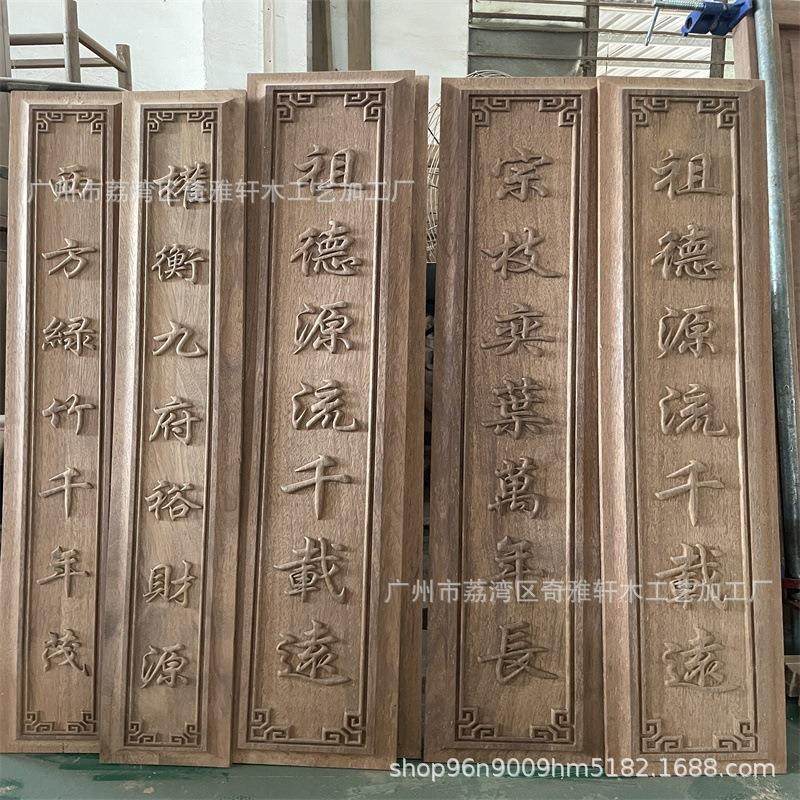 西方綠竹千年茂
權衡九府裕財源
祖德源流千載遠
宗枝奕葉萬年長
祖德源流千載遠
广州市荔湾区奇雅轩木工艺加工厂
广州市荔湾区奇雅轩木工艺加工厂
shop96n9009hm5182.1688.com